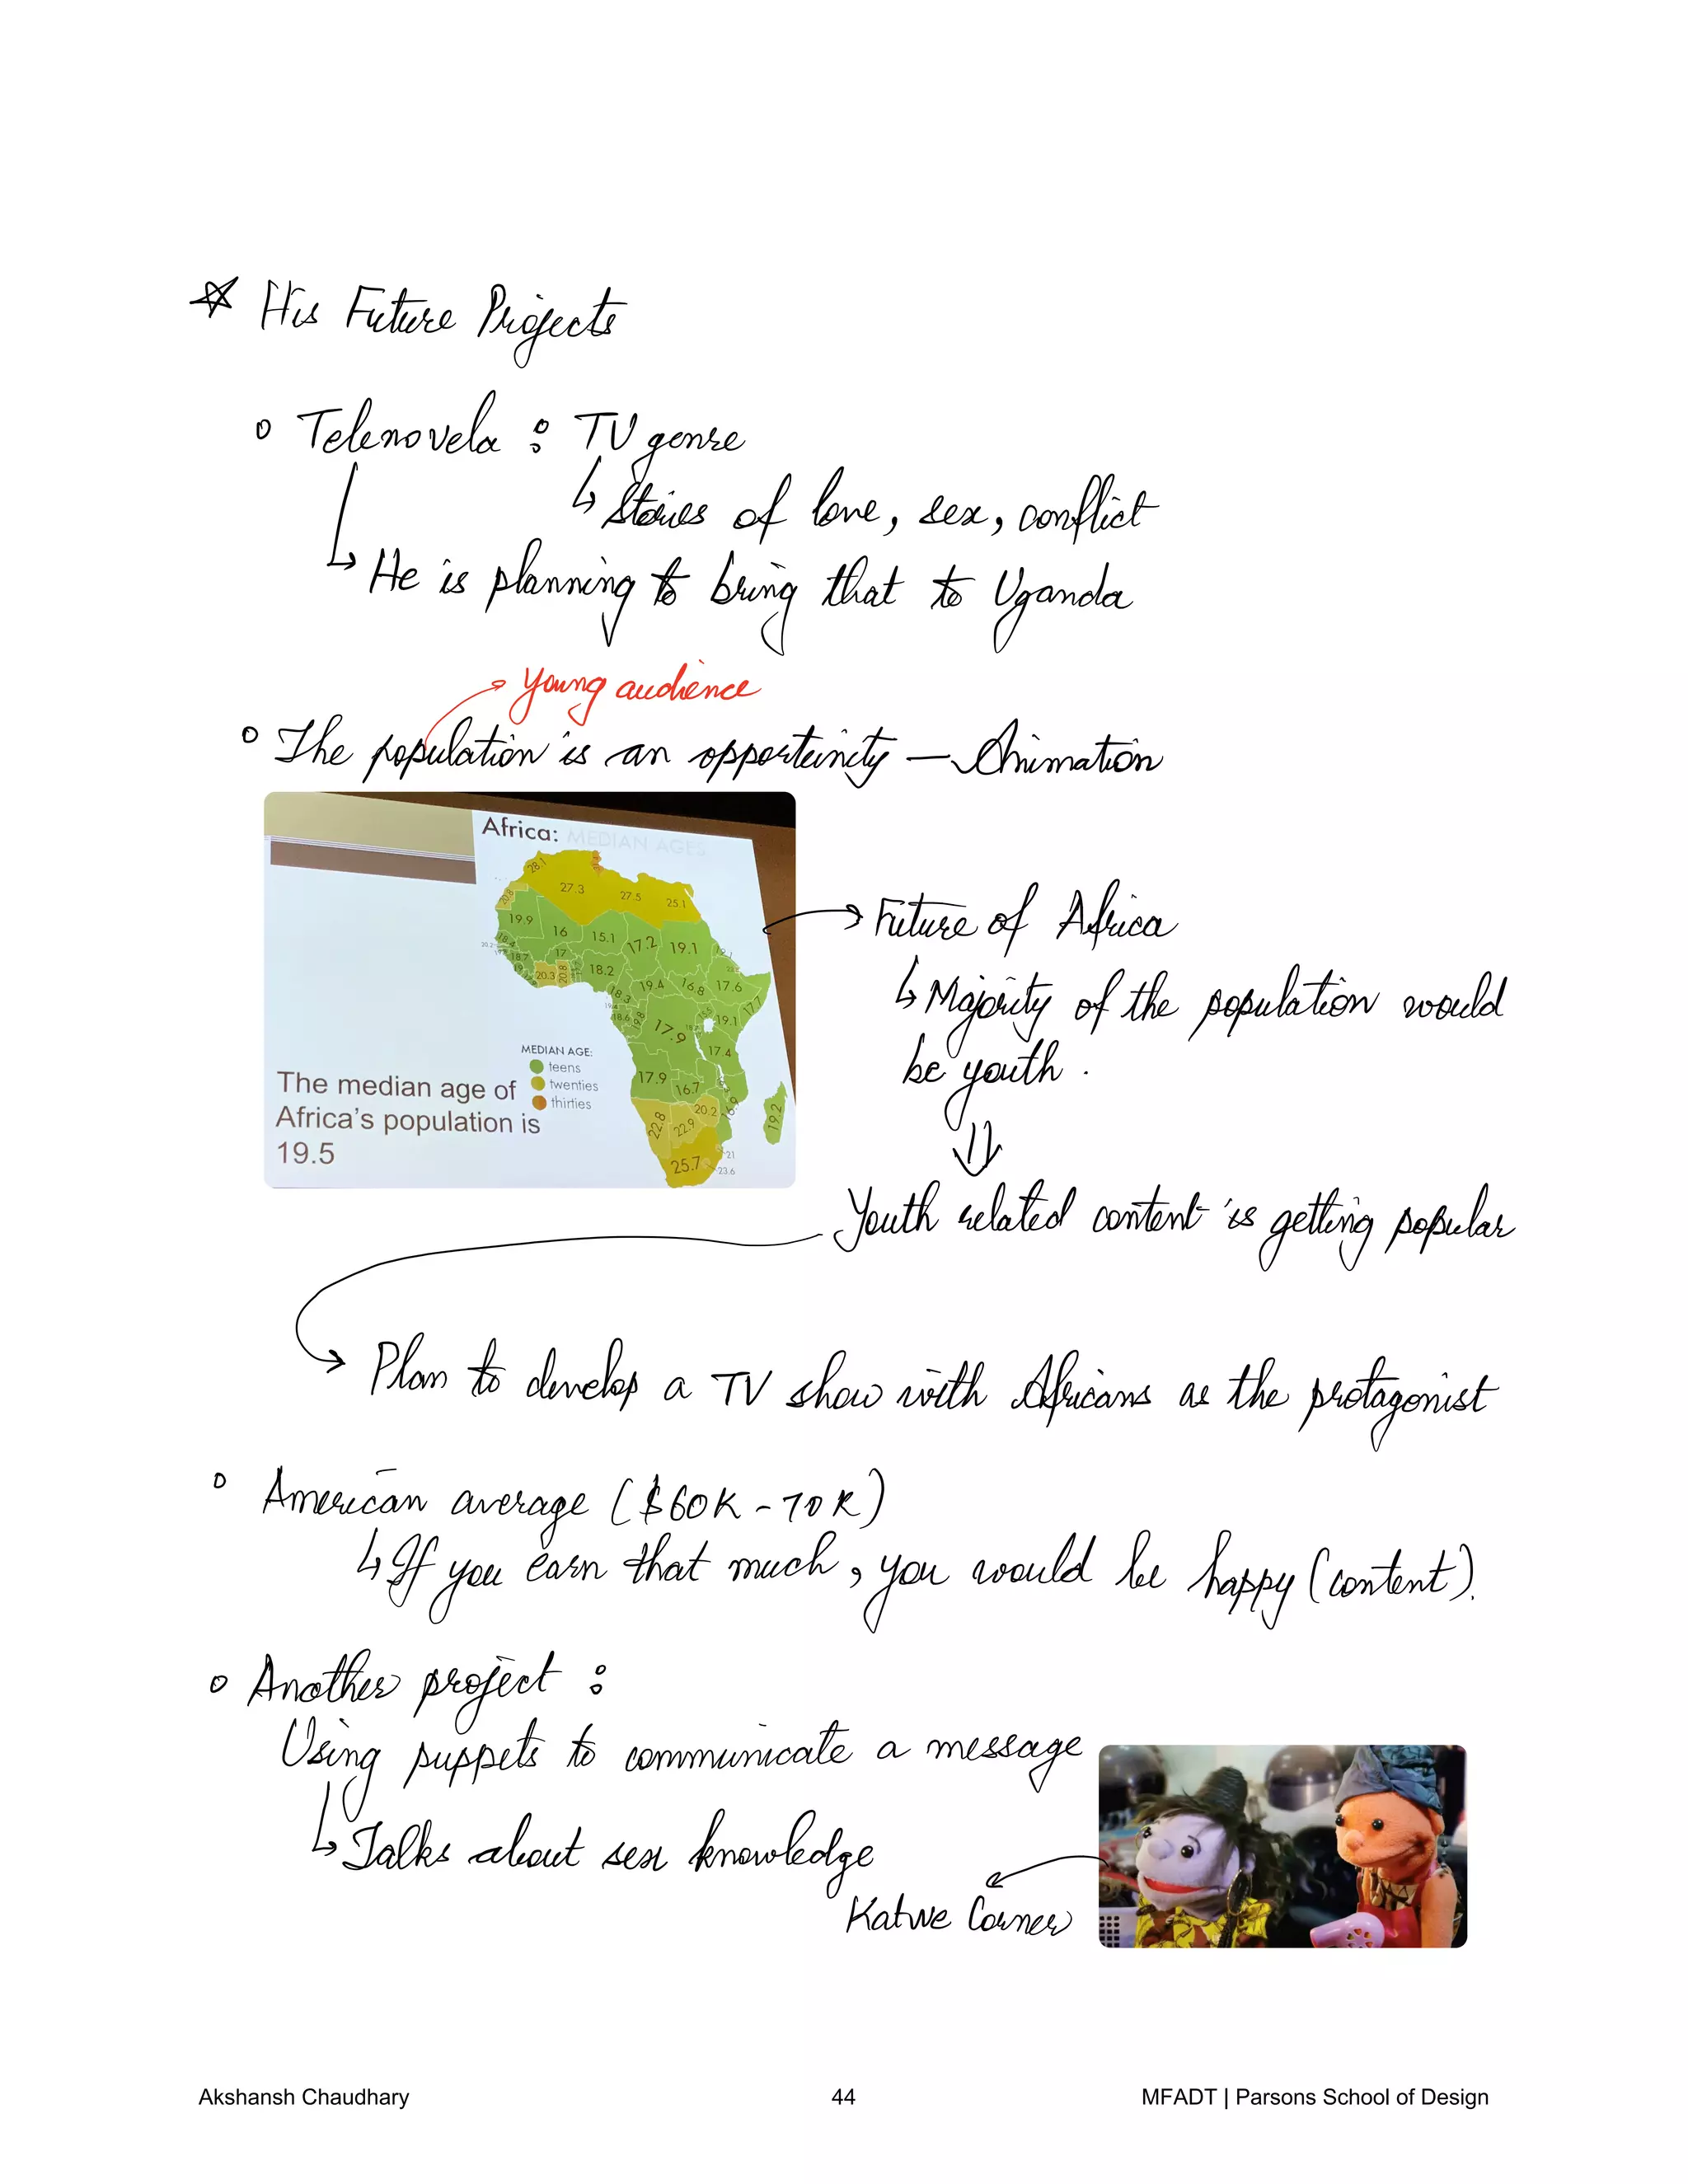 ☆ His Future Projects
◦ Telenovela : TV genre
↳ Stories of love, sex, conflict
↳ He is planning to bring that to Uganda
→ Young audience
◦ The population is an opportunity — Animation
Africa: MEDIAN AGES
28.1
27.3
27.5
25.1
20.8
19.9
16
15.1
17.2
19.1
18.4
18.7
17
20.3
20.8
18.2
18.3
19.4
16.8
17.6
17.7
18.6
19.8
17.9
19.1
17.4
17.9
16.7
20.2
22.8
22.9
19.2
25.7
21
23.6
MEDIAN AGE:
teens
twenties
thirties
The median age of
Africa's population is
19.5
→ Future of Africa
↳ Majority of the population would
be youth.
⇓
Youth related content is getting popular
→ Plan to develop a TV show with Africans as the protagonist
◦ American average ($60K - 70K)
↳ If you earn that much, you would be happy (content).
◦ Another project :
Using puppets to communicate a message
↳ Talks about sex knowledge
Katwe Corner
Akshansh Chaudhary
44
MFADT | Parsons School of Design